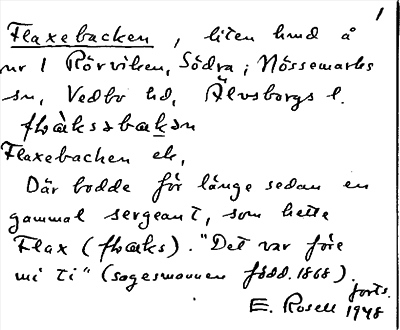 1
Flaxebacken, liten hmd å
nr 1 Rörviken, Södra; Nössemarks
sn, Vedbo hd, Älvsborgs l.
Flaxebacken ek,
Där bodde för länge sedan en
gammal sergeant, som hette
Flax (). "Det var före
mi ti" (sagesmannen född. 1868).
forts.
E. Rosell 1948